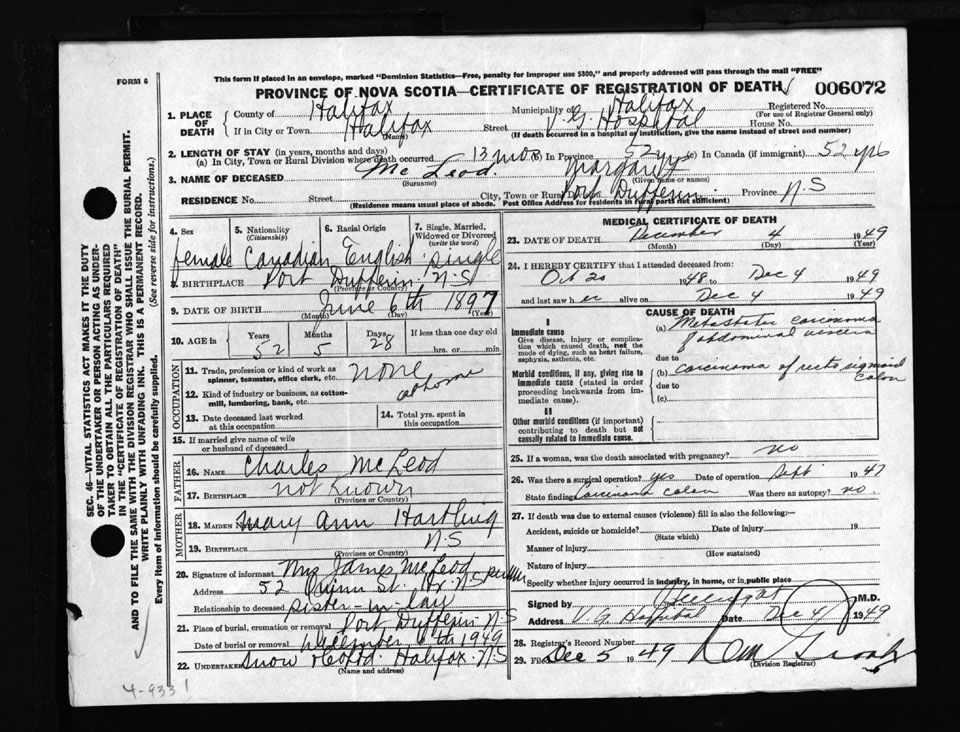 This form if placed in an envelope, marked "Dominion Statistics—Free, penalty for improper use $300," and properly addressed will pass through the mail "FREE"
FORM 6
PROVINCE OF NOVA SCOTIA—CERTIFICATE OF REGISTRATION OF DEATH 006072
1. PLACE OF DEATH County of Halifax Municipality of Halifax Registered No.
(For use of Registrar General only)
If in City or Town Halifax Street V. G. Hospital House No.
(Name) (If death occurred in a hospital or institution, give the name instead of street and number)
2. LENGTH OF STAY (in years, months and days)
(a) In City, Town or Rural Division where death occurred 13 mos (b) In Province 52 yrs (c) In Canada (if immigrant) 52 yrs
3. NAME OF DECEASED Mc Leod. Margaret
(Surname) (Given name or names)
RESIDENCE No. Street City, Town or Rural Port Dufferin Province N.S
(Residence means usual place of abode. Post Office Address for residents in rural parts not sufficient)
4. Sex 5. Nationality (Citizenship) 6. Racial Origin 7. Single, Married, Widowed or Divorced (write the word)
female Canadian English single
8. BIRTHPLACE Port Dufferin N.S
(Province or Country)
9. DATE OF BIRTH June 6th 1897
(Month) (Day) (Year)
10. AGE in Years Months Days If less than one day old
52 5 28 hrs. or min.
OCCUPATION
11. Trade, profession or kind of work as spinner, teamster, office clerk, etc. none
12. Kind of industry or business, as cotton-mill, lumbering, bank, etc. at home
13. Date deceased last worked at this occupation
14. Total yrs. spent in this occupation
15. If married give name of wife or husband of deceased
FATHER
16. NAME Charles McLeod
17. BIRTHPLACE not known
(Province or Country)
MOTHER
18. MAIDEN Mary Ann Hartling
19. BIRTHPLACE N.S
(Province or Country)
20. Signature of informant Mrs James McLeod
Address 52 St. N.S
Relationship to deceased sister-in-law
21. Place of burial, cremation or removal Port Dufferin N.S
Date of burial or removal December 6th 1949
22. Undertaker Snow & Co Ltd. Halifax N.S
(Name and address)
MEDICAL CERTIFICATE OF DEATH
23. DATE OF DEATH December 4 1949
(Month) (Day) (Year)
24. I HEREBY CERTIFY that I attended deceased from:
Oct 20 1948 to Dec 4 1949
and last saw her alive on Dec 4 1949
CAUSE OF DEATH
I
Immediate cause
Give disease, injury or complication which caused death, not the mode of dying, such as heart failure, asphyxia, asthenia, etc.
(a) Metastatic carcinoma of abdominal viscera
due to
Morbid conditions, if any, giving rise to immediate cause (stated in order proceeding backwards from immediate cause).
(b) carcinoma of recto sigmoid colon
due to
(c)
II
Other morbid conditions (if important) contributing to death but not causally related to immediate cause.
25. If a woman, was the death associated with pregnancy? no
26. Was there a surgical operation? yes Date of operation Sept 1947
State finding Carcinoma colon Was there an autopsy? no.
27. If death was due to external causes (violence) fill in also the following:—
Accident, suicide or homicide? Date of injury 19
(State which)
Manner of injury
(How sustained)
Nature of injury
Specify whether injury occurred in industry, in home, or in public place
Signed by M.D.
Address V. G. Hospital Date Dec 4 1949
28. Registrar's Record Number
29. Filed Dec 5 1949
(Division Registrar)
SEC. 46—VITAL STATISTICS ACT MAKES IT THE DUTY
OF THE UNDERTAKER OR PERSON ACTING AS UNDER-
TAKER TO OBTAIN ALL THE PARTICULARS REQUIRED
IN THE "CERTIFICATE OF REGISTRATION OF DEATH"
AND TO FILE THE SAME WITH THE DIVISION REGISTRAR WHO SHALL ISSUE THE BURIAL PERMIT.
WRITE PLAINLY WITH UNFADING INK. THIS IS A PERMANENT RECORD.
Every item of information should be carefully supplied. (See reverse side for instructions.)
4-933